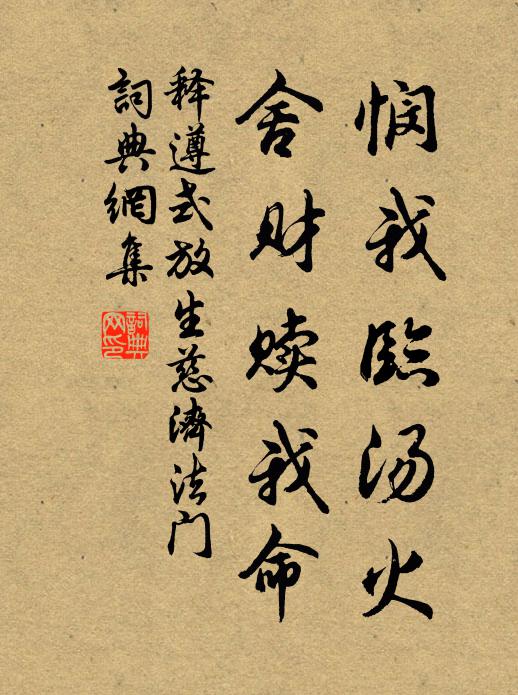 悯我临汤火
舍财赎我命
释遵式放生慈济法门
词典網集
詞典網印